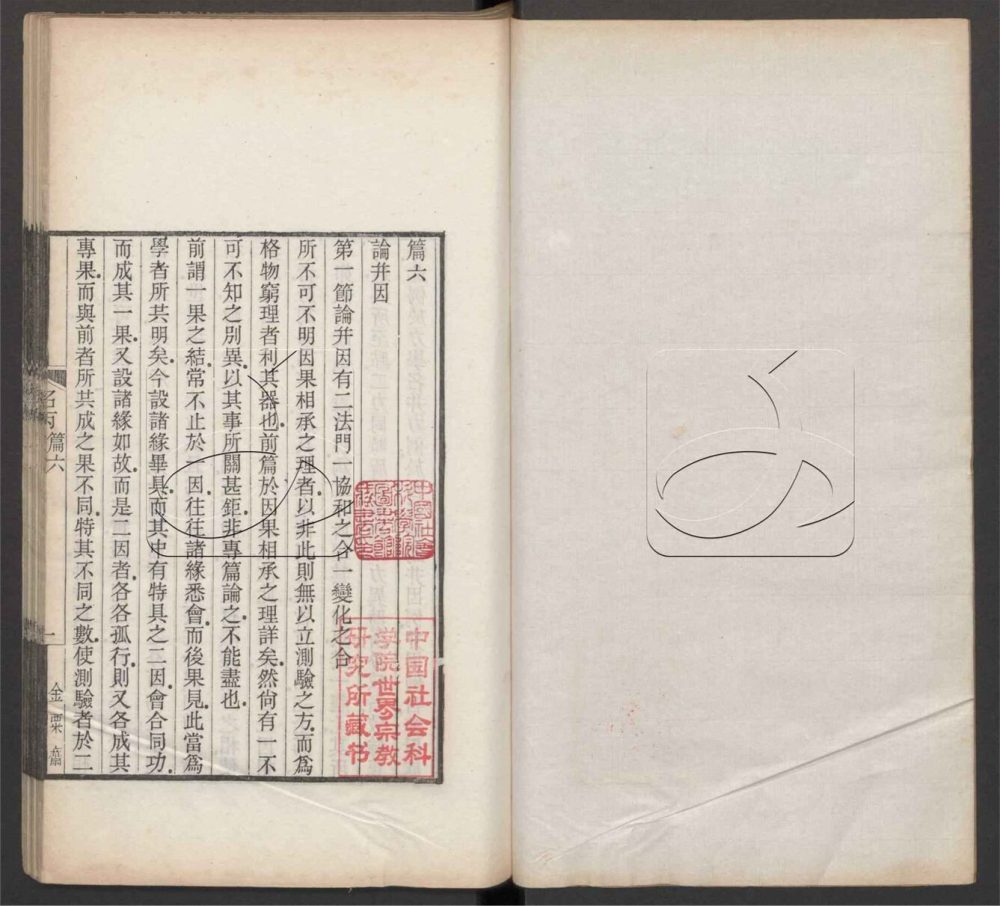 篇六
論幷因
第一節論幷因有二法門一協和之合一變化之合
所不可不明因果相承之理者以非此則無以立測驗之方而爲
格物窮理者利其器也前篇於因果相承之理詳矣然尙有一不
可不知之別異以其事所關甚鉅非專篇論之不能盡也
前謂一果之結常不止於一因往往諸緣悉會而後果見此當爲
學者所共明矣今設諸緣畢具而其中有特具之二因會合同功
而成其一果又設諸緣如故而是二因者各各孤行則又各成其
專果而與前者所共成之果不同特其不同之數使測驗者於二
篇六
一
金粟齋
中国社会科
学院世界宗教
研究所藏书